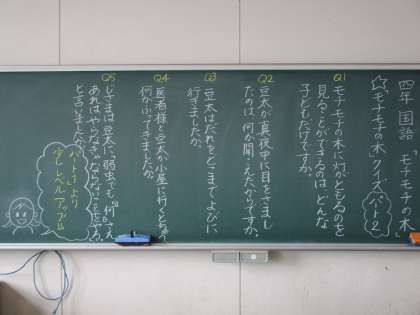 四年 国語 「モチモチの木」
☆「モチモチの木」クイズ パート2
Q1
モチモチの木に灯がともるのを
見ることができるのはどんな
子どもだけですか。
Q2
豆太が真夜中に目をさまし
たのは、何が聞こえたからですか。
Q3
豆太はだれをどこまでよびに
行きましたか。
Q4
医者様と豆太が小屋に行くとちゅう
何がふってきましたか。
Q5
じさまは豆太に、「弱虫でも、何があれば
やらなきゃならないことはやる
と言いましたか。
パート1より
少しレベルアップ!!